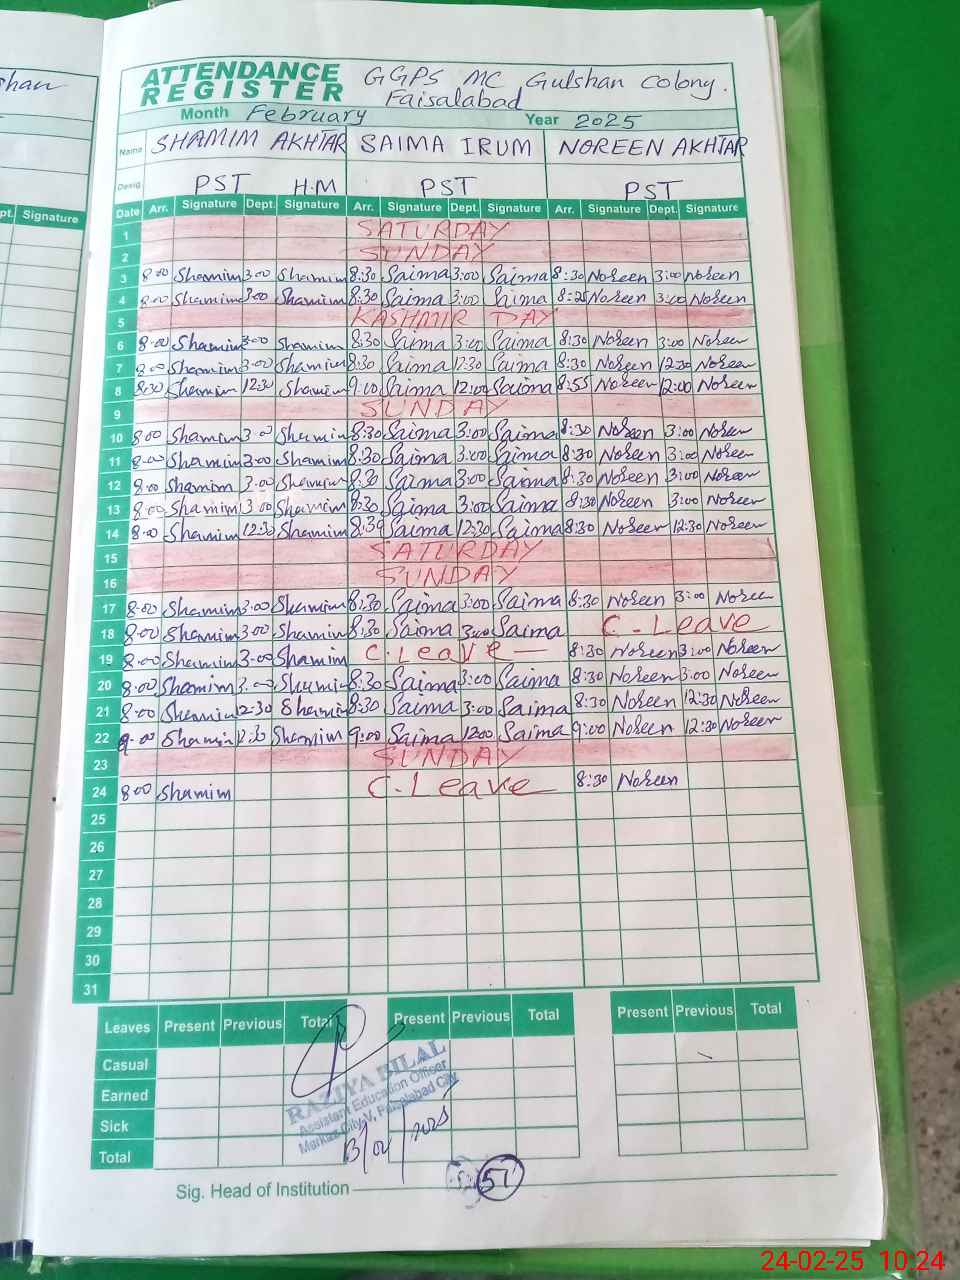 shan
pt. Signature
ATTENDANCE REGISTER GGPS MC Gulshan Colony.
Faisalabad
Month February Year 2025
Name SHAMIM AKHTAR SAIMA IRUM NOREEN AKHTAR
Desig PST H.M PST PST
Date Arr. Signature Dept. Signature Arr. Signature Dept. Signature Arr. Signature Dept. Signature
1 SATURDAY
2 SUNDAY
3 8:00 Shamim 3:00 Shamim 8:30 Saima 3:00 Saima 8:30 Noreen 3:00 Noreen
4 8:00 Shamim 3:00 Shamim 8:30 Saima 3:00 Saima 8:25 Noreen 3:00 Noreen
5 KASHMIR DAY
6 8:00 Shamim 3:00 Shamim 8:30 Saima 3:00 Saima 8:30 Noreen 3:00 Noreen
7 8:00 Shamim 3:00 Shamim 8:30 Saima 12:30 Saima 8:30 Noreen 12:30 Noreen
8 8:30 Shamim 12:30 Shamim 9:00 Saima 12:00 Saima 8:55 Noreen 12:00 Noreen
9 SUNDAY
10 8:00 Shamim 3:00 Shamim 8:30 Saima 3:00 Saima 8:30 Noreen 3:00 Noreen
11 8:00 Shamim 3:00 Shamim 8:30 Saima 3:00 Saima 8:30 Noreen 3:00 Noreen
12 8:00 Shamim 3:00 Shamim 8:30 Saima 3:00 Saima 8:30 Noreen 3:00 Noreen
13 8:00 Shamim 3:00 Shamim 8:30 Saima 3:00 Saima 8:30 Noreen 3:00 Noreen
14 8:00 Shamim 12:30 Shamim 8:30 Saima 12:30 Saima 8:30 Noreen 12:30 Noreen
15 SATURDAY
16 SUNDAY
17 8:00 Shamim 3:00 Shamim 8:30 Saima 3:00 Saima 8:30 Noreen 3:00 Noreen
18 8:00 Shamim 3:00 Shamim 8:30 Saima 3:00 Saima C. Leave
19 8:00 Shamim 3:00 Shamim C. Leave — 8:30 Noreen 3:00 Noreen
20 8:00 Shamim 3:00 Shamim 8:30 Saima 3:00 Saima 8:30 Noreen 3:00 Noreen
21 8:00 Shamim 12:30 Shamim 8:30 Saima 3:00 Saima 8:30 Noreen 12:30 Noreen
22 9:00 Shamim 12:30 Shamim 9:00 Saima 12:00 Saima 9:00 Noreen 12:30 Noreen
23 SUNDAY
24 8:00 Shamim C. Leave 8:30 Noreen
25
26
27
28
29
30
31
Leaves Present Previous Total Present Previous Total Present Previous Total
Casual
Earned
Sick
Total
RAZIYA BILAL
Assistant Education Officer
Markaz City-V, Faisalabad City
13/02/2025
Sig. Head of Institution
57
24-02-25 10:24